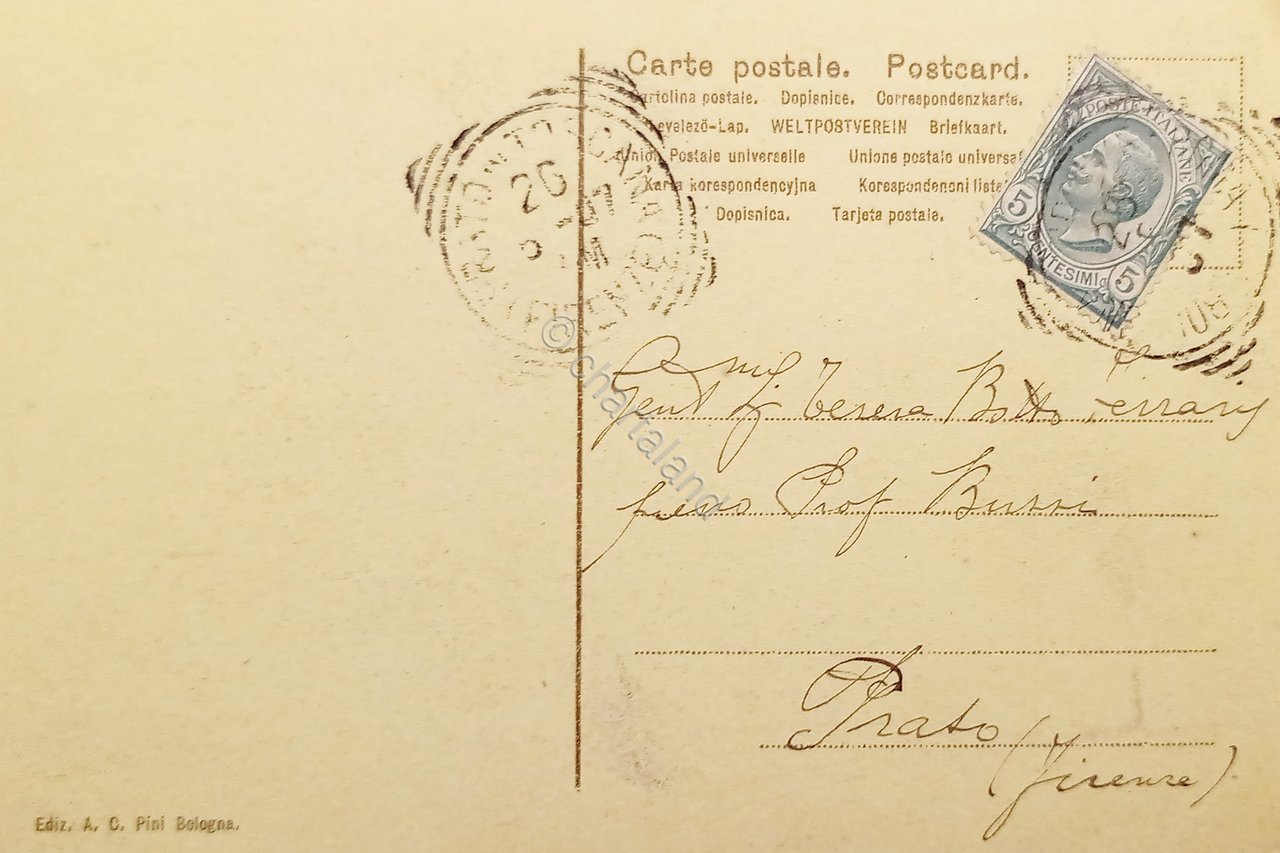 Carte postale. Postcard.
Cartolina postale. Dopisnice. Correspondenzkarte.
Levelező-Lap. WELTPOSTVEREIN Briefkaart.
Union Postale universelle Unione postale universale
Karta korespondencyjna Korespondencni listek
Dopisnica. Tarjeta postale.
POSTE·ITALIANE
5 CENTESIMI 5
26
TOSCANA
©chartaland
Gent Sig Teresa Botto Ferrary
presso Prof Burri
Prato
(Firenze)
Ediz. A. C. Pini Bologna.